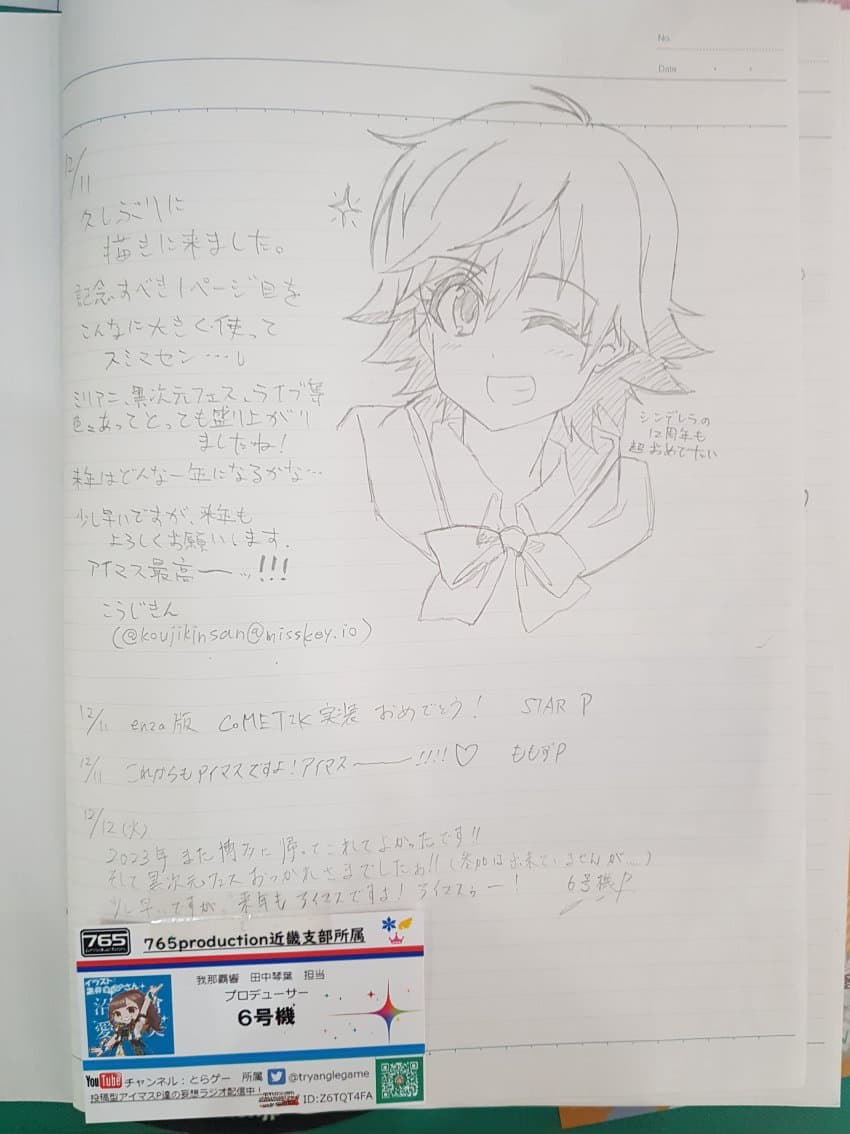 No.
Date
12/11
久しぶりに
描きに来ました。
記念すべき1ページ目を
こんなに大きく使って
スミマセン…
ミリアニ、異次元フェス、ライブ等
色々あってとっても盛り上がり
ましたね!
来年はどんな一年になるかな…
少し早いですが、来年も
よろしくお願いします。
アイマス最高ーーッ!!!
こうじきん
(@koujikinsan@misskey.io)
シンデレラの
12周年も
超おめでたい
12/11 enza版 CoMETIK 実装 おめでとう! STAR P
12/11 これからもアイマスですよ!アイマス―――!!!!♡ ももずP
12/12(火)
2023年 また博多に帰ってこれてよかったです!!
そして異次元フェスおつかれさまでしたぉ!!(参加は出来ていませんが....)
少し早いですが、来年もアイマスですよ!アイマスぅー! 6号機P
765
765production近畿支部所属
我那覇響 田中琴葉 担当
プロデューサー
6号機
イラスト:
YouTube チャンネル:とらゲー 所属 @tryanglegame
投稿型アイマスP達の妄想ラジオ配信中! ID:Z6TQT4FA